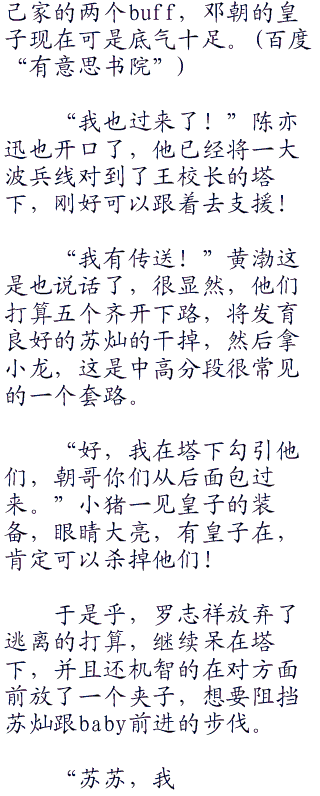 己家的两个buff，邓朝的皇
子现在可是底气十足。(百度
“有意思书院”)
“我也过来了！”陈亦
迅也开口了，他已经将一大
波兵线对到了王校长的塔
下，刚好可以跟着去支援！
“我有传送！”黄渤这
是也说话了，很显然，他们
打算五个齐开下路，将发育
良好的苏灿的干掉，然后拿
小龙，这是中高分段很常见
的一个套路。
“好，我在塔下勾引他
们，朝哥你们从后面包过
来。”小猪一见皇子的装
备，眼睛大亮，有皇子在，
肯定可以杀掉他们！
于是乎，罗志祥放弃了
逃离的打算，继续呆在塔
下，并且还机智的在对方面
前放了一个夹子，想要阻挡
苏灿跟baby前进的步伐。
“苏苏，我